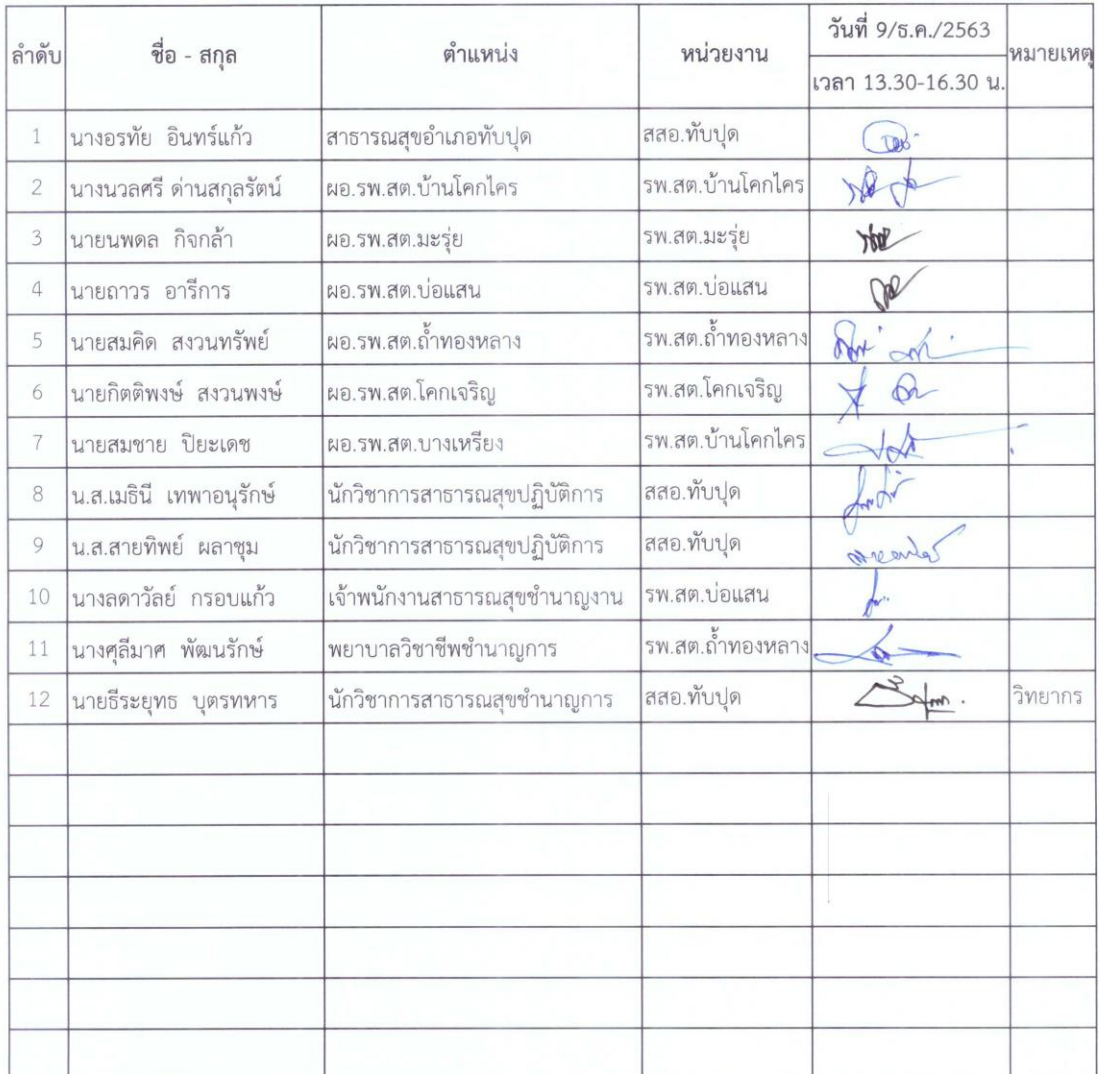 ลำดับ ชื่อ - สกุล ตำแหน่ง หน่วยงาน วันที่ 9/ธ.ค./2563 หมายเหตุ
เวลา 13.30-16.30 น.
1 นางอรทัย อินทร์แก้ว สาธารณสุขอำเภอทับปุด สสอ.ทับปุด
2 นางนวลศรี ด่านสกุลรัตน์ ผอ.รพ.สต.บ้านโคกไคร รพ.สต.บ้านโคกไคร
3 นายนพดล กิจกล้า ผอ.รพ.สต.มะรุ่ย รพ.สต.มะรุ่ย
4 นายถาวร อารีการ ผอ.รพ.สต.บ่อแสน รพ.สต.บ่อแสน
5 นายสมคิด สงวนทรัพย์ ผอ.รพ.สต.ถ้ำทองหลาง รพ.สต.ถ้ำทองหลาง
6 นายกิตติพงษ์ สงวนพงษ์ ผอ.รพ.สต.โคกเจริญ รพ.สต.โคกเจริญ
7 นายสมชาย ปิยะเดช ผอ.รพ.สต.บางเหรียง รพ.สต.บ้านโคกไคร
8 น.ส.เมธินี เทพาอนุรักษ์ นักวิชาการสาธารณสุขปฏิบัติการ สสอ.ทับปุด
9 น.ส.สายทิพย์ ผลาชุม นักวิชาการสาธารณสุขปฏิบัติการ สสอ.ทับปุด
10 นางลดาวัลย์ กรอบแก้ว เจ้าพนักงานสาธารณสุขชำนาญงาน รพ.สต.บ่อแสน
11 นางศุลีมาศ พัฒนรักษ์ พยาบาลวิชาชีพชำนาญการ รพ.สต.ถ้ำทองหลาง
12 นายธีระยุทธ บุตรทหาร นักวิชาการสาธารณสุขชำนาญการ สสอ.ทับปุด วิทยากร